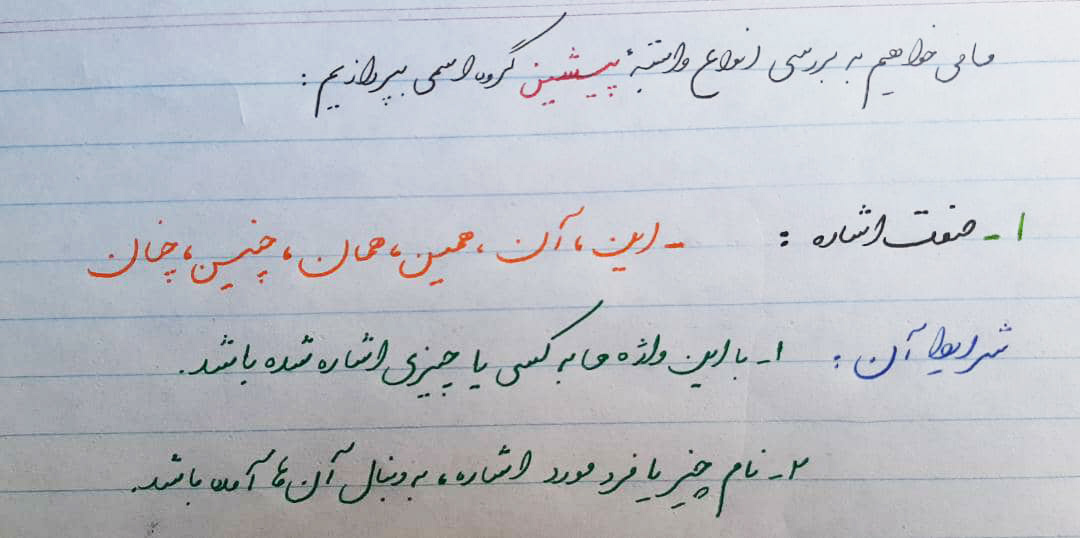 ما می خواهیم به بررسی انواع وابستهٔ پیشین گروه اسمی بپردازیم :
۱ - صفت اشاره : - این ، آن ، همین ، همان ، چنین ، چنان
شرایط آن : ۱ - با این واژه ها به کسی یا چیزی اشاره شده باشد .
۲ - نام چیز یا فرد مورد اشاره ، به دنبال آن ها آمده باشد .